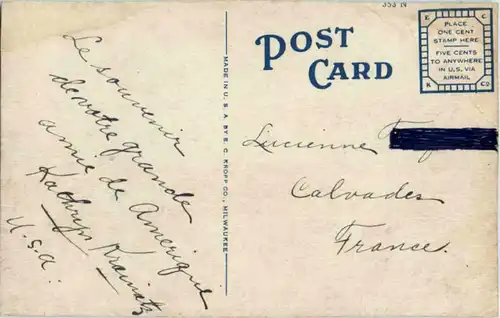 Le souvenir
de votre grande
amie de Amerique
Kathryn
U.S.A.
MADE IN U. S. A. BY E. C. KROPP CO., MILWAUKEE
353 N
POST
CARD
E C
PLACE
ONE CENT
STAMP HERE
FIVE CENTS
TO ANYWHERE
IN U.S. VIA
AIRMAIL
K CO
Lucienne
Calvados
France.